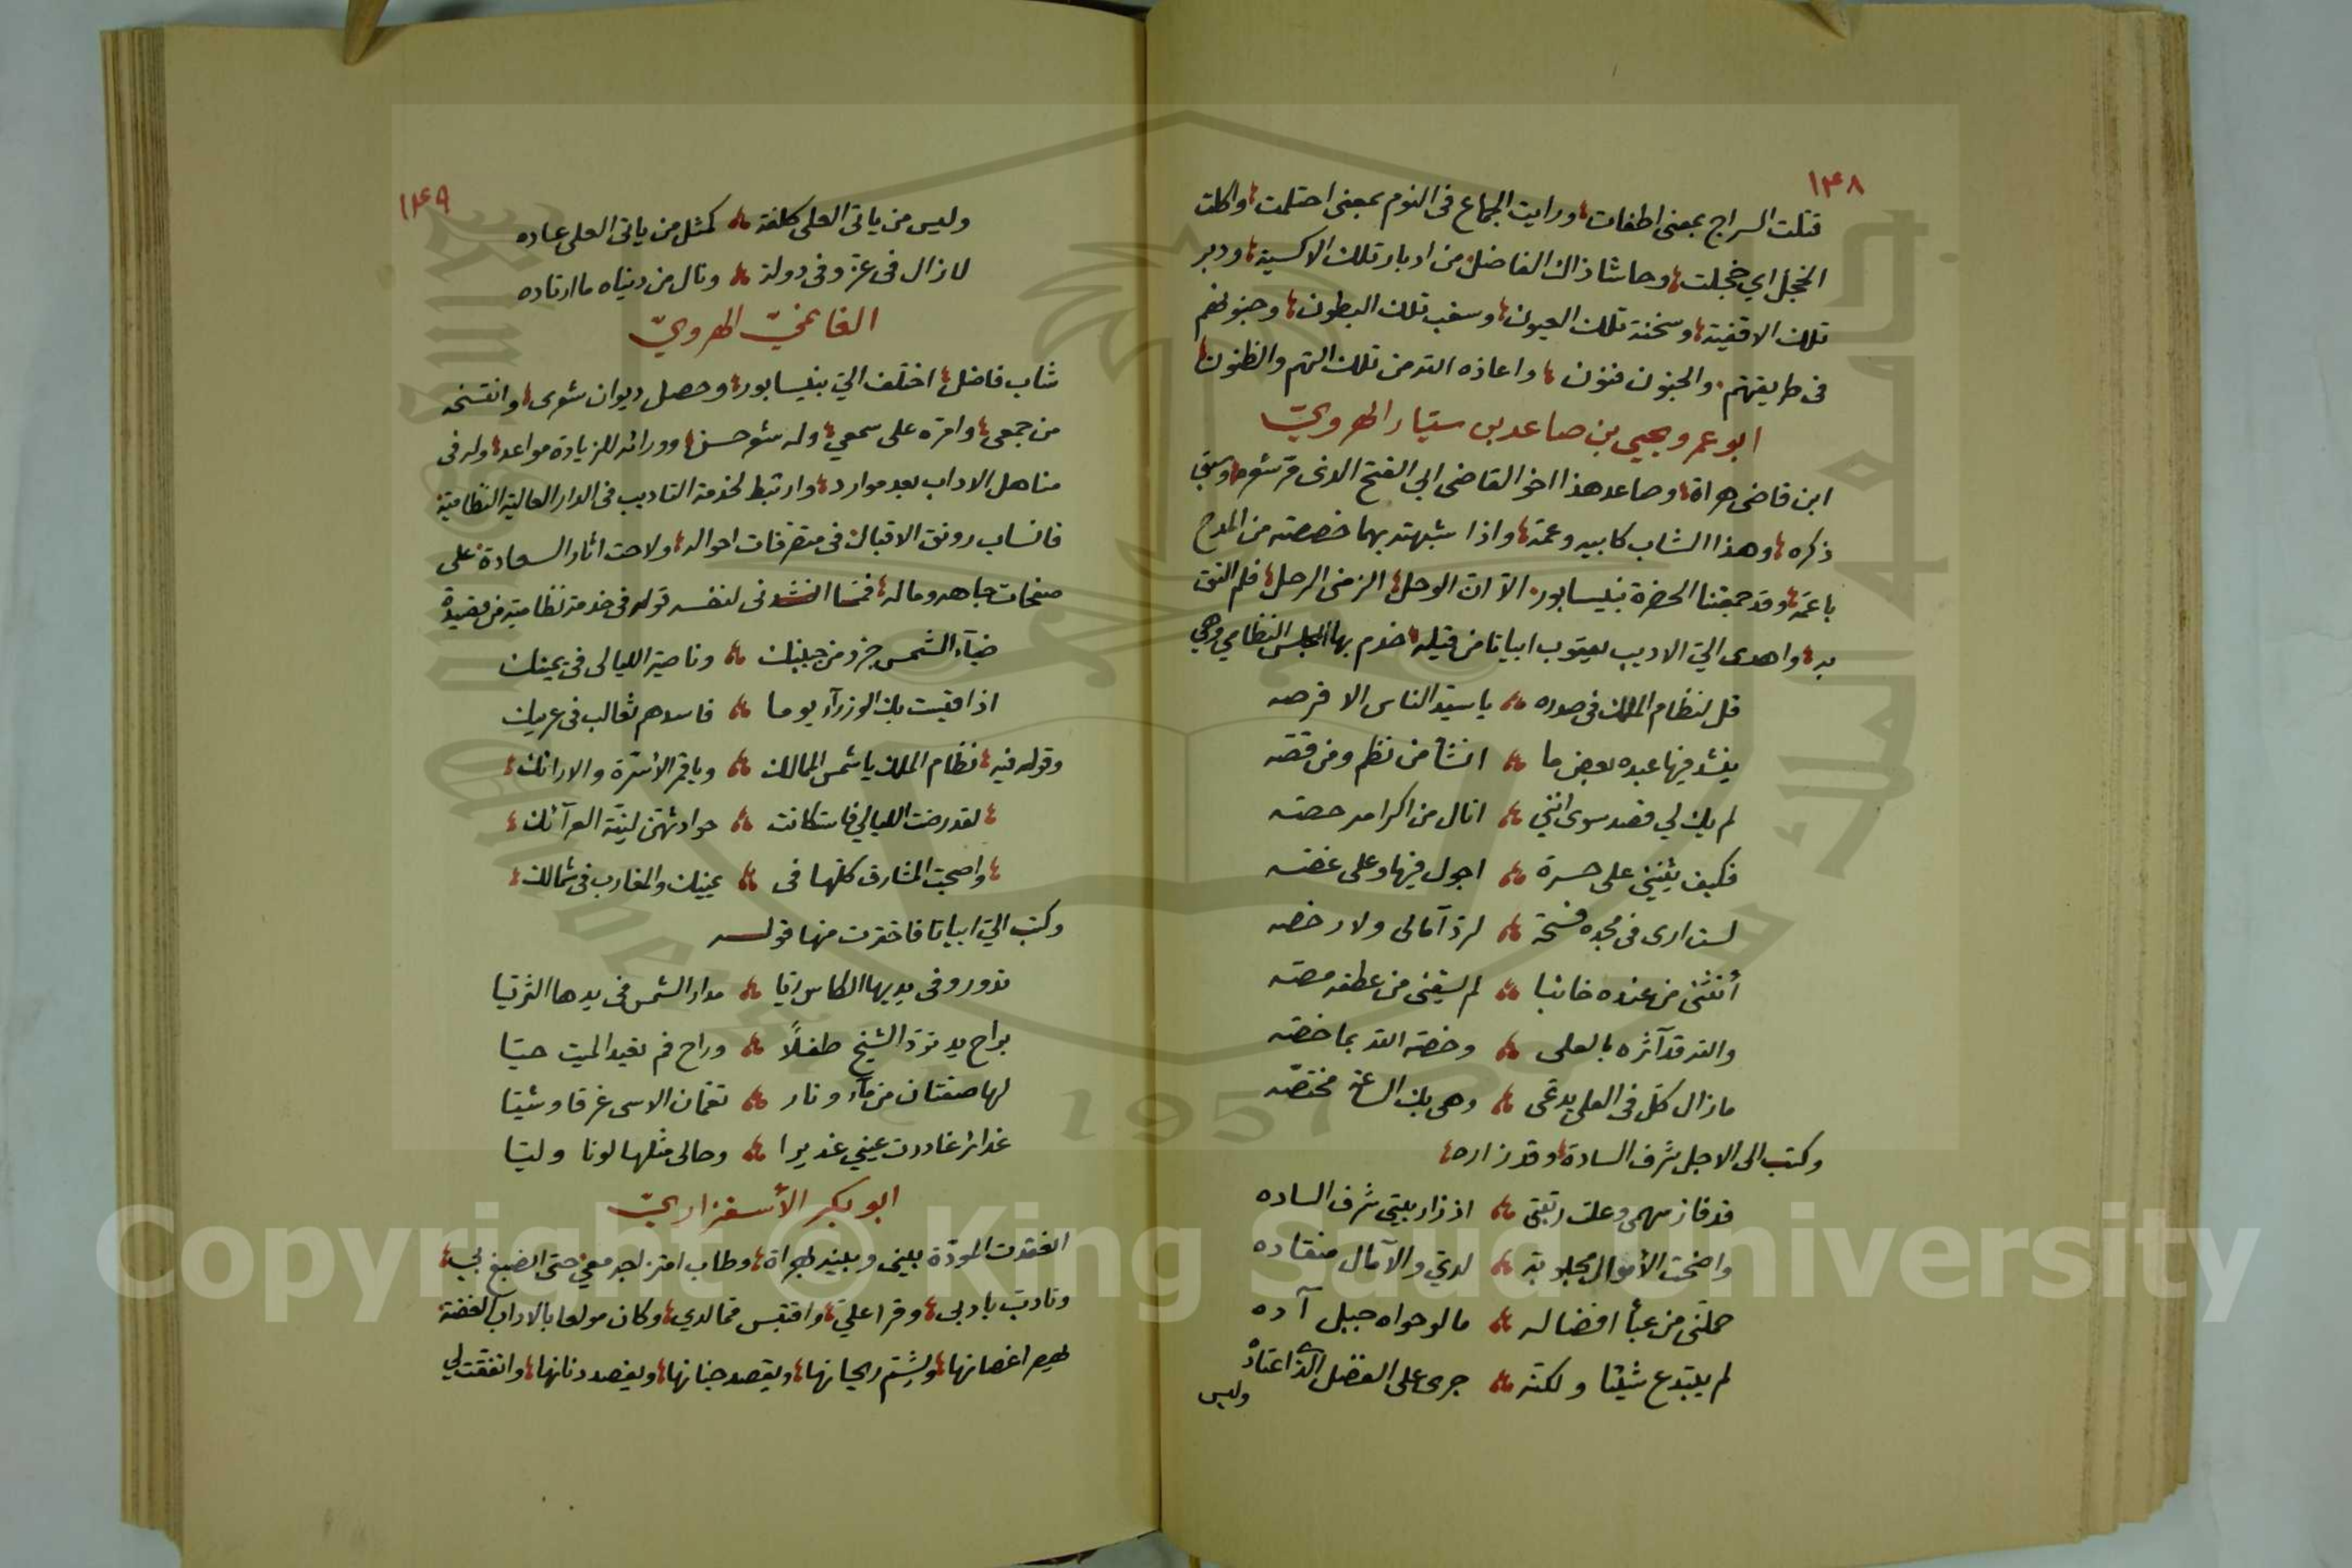 ١٤٨
قتلت السراج بمعنى اطفات، ورايت الجماع فى النوم بمعنى احتلمت، واكلت
الخجل اي خجلت، وحاشا ذاك الفاضل من ادبار تلك الاكسية، ودبر
تلك الاقفية، وسخنة تلك العيون، وسغب تلك البطون، وجنونهم
فى طريقتهم. والجنون فنون، واعاذه الله من تلك التهم والظنون،
ابو عمرو يحيى بن صاعد بن سيّار الهرويّ
ابن قاضى هراة، وصاعد هذا اخو القاضى ابي الفتح الذى مرّ شعره، وسبق
ذكره، وهذا الشاب كابيه وعمّه، واذا شبهته بهما خصصته من المدح
باعمّه، وقد جمعتنا الحضرة بنيسابور. الاّ انّ الوحل، الزمنى الرحل، فلم التق
به، واهدى اليّ الاديب يعقوب ابياتا من قيله، خدم بها المجلس النظامي وهي
قل لنظام الملك فى صدره ؞ يا سيّد الناس الا فرصه
ينشد فيها عبده بعض ما ؞ انشأ من نظم ومن قصّه
لم يك لي قصد سوى انني ؞ انال من اكرامه حصّه
فكيف يثنيني على حسرة ؞ اجول فيها وعلى غصّه
لست ارى فى مجده فسحة ؞ لردّ آمالى ولا رخصه
أنثنى من عنده خائبا ؞ لم يسقنى من عطفه مصّه
والله قد آثره بالعلى ؞ وخصّه الله بما خصّه
ما زال كلّ فى العلى يدعى ؞ وهى بك الساعة مختصّه
وكتب الى الاجل شرف السادة، وقد زاره،
قد فاز سهمى وعلت رتبتى ؞ اذ زار بيتى شرف الساده
واضحت الأموال مجلوبة ؞ لديّ والآمال منقاده
حملنى من عبأ افضاله ؞ ما لو حواه جبل آده
لم يبتدع شيئا ولكنّه ؞ جرى على الفضل الذى اعتاده
وليس
١٤٩
وليس من ياتى العلى كلفة ؞ كمثل من ياتى العلى عاده
لا زال فى عزّ وفى دولة ؞ ونال من دنياه ما ارتاده
الغانميّ الهرويّ
شاب فاضل، اختلف اليّ بنيسابور، وحصل ديوان شعرى، وانتسخه
من جمعى، وامرّه على سمعي، وله شعر حسن، وورائه للزيادة مواعد، وله فى
مناهل الاداب بعد موارد، وارتبط لخدمة التاديب فى الدار العالية النظامية
فانساب رونق الاقبال فى متصرفات احواله، ولاحت اثار السعادة على
صفحات جاهه وماله، فممّا انشدنى لنفسه قوله فى خدمة نظامية من قصيدة
ضيآء الشمس جزء من جبينك ؞ وناصية الليالى فى يمينك
اذا قيست بك الوزرآء يوما ؞ فاسدهم ثعالب فى عرينك
وقوله فيه، نظام الملك يا شمس الممالك ؞ ويا قمر الأسرّة والارائك،
، لقد رضت الليالي فاستكانت ؞ حوادثهنّ لينّة العرآئك،
، واصبحت المشارق كلّها فى ؞ يمينك والمغارب فى شمالك،
وكتب اليّ ابياتا فاخترت منها قوله
تدور وفى يديها الكاس ريّا ؞ مدار الشمس فى يدها الثريّا
براح يد تردّ الشيخ طفلاً ؞ وراح فم تعيد الميت حيّا
لها صفتان من مآء ونار ؞ تعمّان الاسى غرقا وشيّا
غدائر غادرت عيني غديرا ؞ وحالى مثلها لونا وليّا
ابو بكر الأسفزاريّ
انعقدت المودّة بينى وبينه بهراة، وطاب امتزاجه معي، حتى انصبغ بى،
وتادّب بادبى، وقرا عليّ، واقتبس ممّا لدي، وكان مولعا بالاداب الغضّة
يهصر اغصانها، ويشتم ريحانها، ويقصد جنانها، ويفصد دنانها، واتفقت لي
Copyright © King Saud University
1957